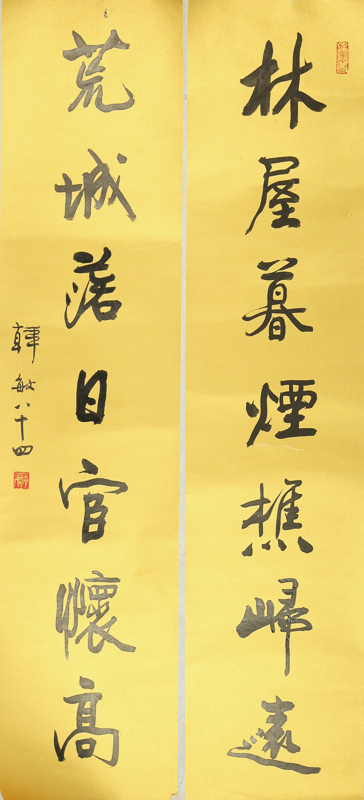 林屋暮煙樵歸遠
荒城落日官懷高
韓敏八十四